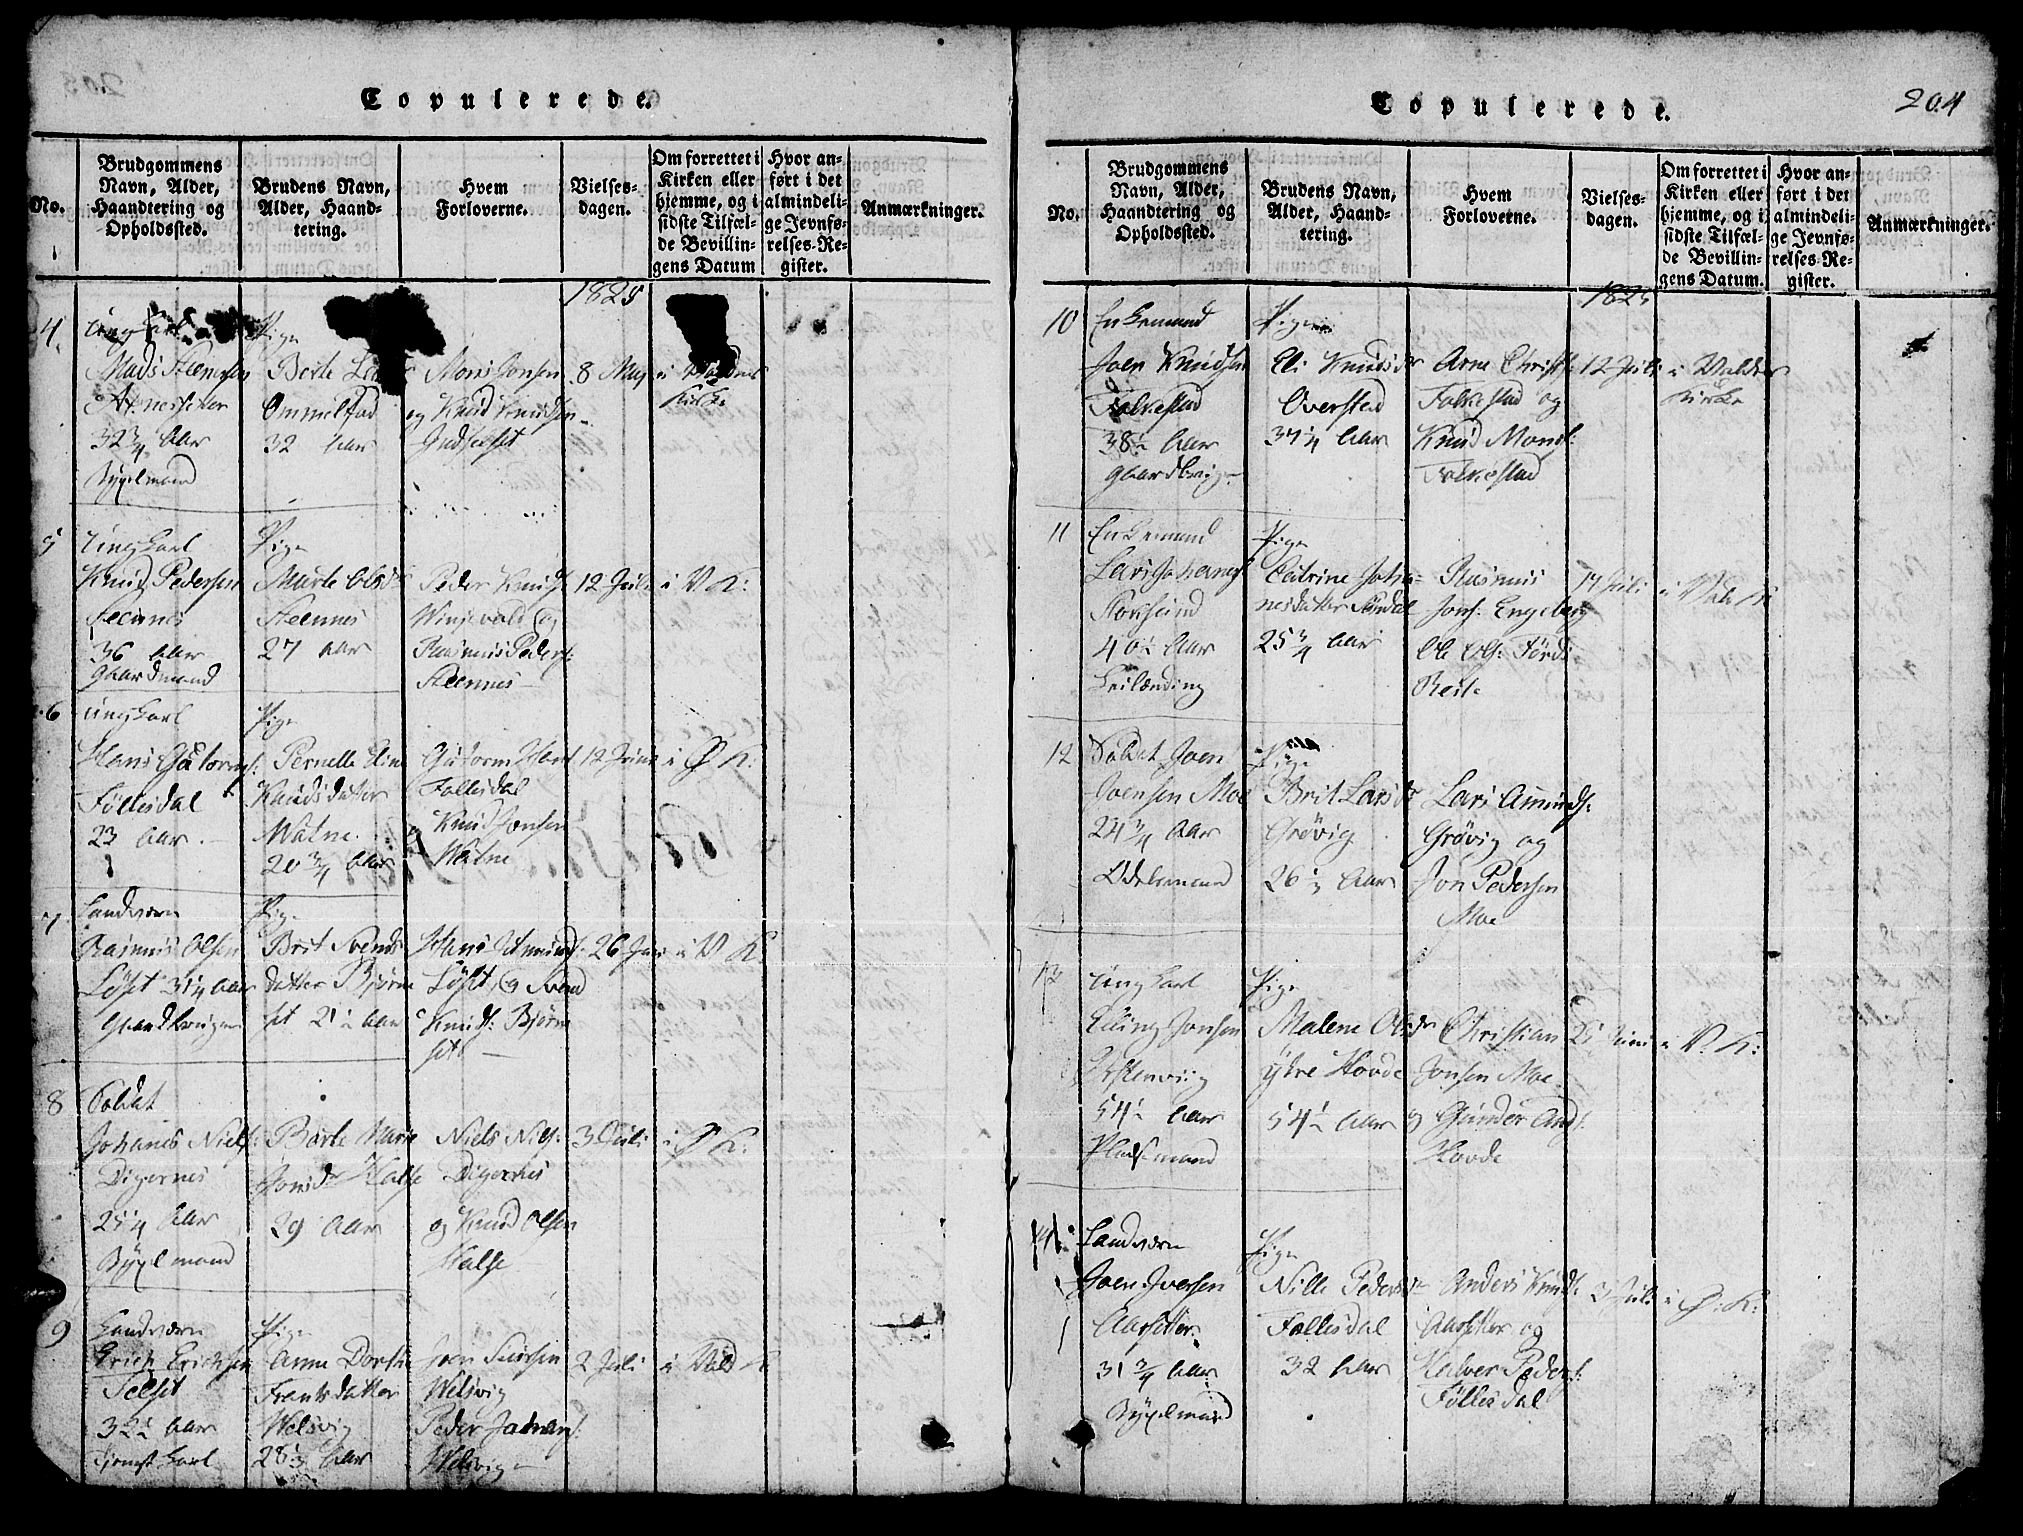 Copulerede.
No.
Brudgommens
Navn, Alder,
Haandtering og
Opholdssted.
Brudens Navn,
Alder, Haand-
tering.
Hvem
Forloverne.
Vielses-
dagen.
Om forrettet i
Kirken eller
hjemme, og i
sidste Tilfæl-
de Bevillin-
gens Datum
Hvor an-
ført i det
almindeli-
ge Jevnfø-
relses-Re-
gister.
Anmærkninger.
1825
4
Ungkarl
Mads Steensen
32 3/4 Aar
Pige
Berte
Ommelfad
32 Aar
Mons Jonsen
og Knud Knudsen
8 May
Kirke
5
Ungkarl
Knud Pedersen
Steennes
36 Aar
Gaardmand
Pige
Marte Olsdr
Steennes
27 Aar
Peder Knuds:
Winjevold og
Rasmus Peders:
Steennes
12 Juli
i V. K:
6
Ungkarl
Hans Guttorms:
Föllesdal
23 Aar
Pige
Pernelle Eline
Knudsdatter
Watne
20 3/4 Aar
Guttorm
Follesdal
og Knud Jonsen
Watne
12 Juni
i Ø K:
7
Landværn
Rasmus Olsen
Löset 31 1/4 Aar
Gaardbruger
Pige
Brit Svends
datter Björne
set 21 1/2 Aar
Hans Amunds:
Löset, og Svend
Knuds: Björne
set
26 Juni
i V K
8
Soldat
Johanes Niels:
Digernes
25 1/4 Aar
Bÿxelmand
Berte Marie
Jonsdr Halse
29 Aar
Niels Niels:
Digernes
og Knud Olsen
Halse
3 Juli
i Ø K:
9
Landværn
Erich Erichsen
Selset
32 1/2 Aar
Tjenestkarl
Pige
Anne Dorthe
Frantsdatter
Welsvig
28 1/2 Aar
Joen Siursen
Welsvig
Peder Johans:
Welsvig
2 Juli
i Vold K
Copulerede.
204
No.
Brudgommens
Navn, Alder,
Haandtering og
Opholdssted.
Brudens Navn,
Alder, Haand-
tering.
Hvem
Forloverne.
Vielses-
dagen.
Om forrettet i
Kirken eller
hjemme, og i
sidste Tilfæl-
de Bevillin-
gens Datum.
Hvor an-
ført i det
almindeli-
ge Jevnfø-
relses-Re-
gister.
Anmærkninger.
1825
10
Enkemand
Joen Knudsen
Folkestad
38 1/2 Aar
Gaardbrug
Pige
Eli Knudsdr
Överstad
37 1/4 Aar
Arne Christ:
Folkestad og
Knud Mons:
Folkestad
12 Juli
i Volden
Kirke
11
Enkemand
Lars Johanes:
40 1/2 Aar
Leilænding
Pige
Catrine Joha-
nesdatter
25 3/4 Aar
Rasmus
Jons: Engeberg
Ole Ols: Förde
Reite
17 Juli
i Vold K
12
Soldat Joen
Joensen Moe
24 3/4 Aar
Odelsmand
Pige
Brit Larsdr
Grövig
26 1/2 Aar
Lars Amunds:
Grövig og
Jon Pedersen
Moe
13
Ungkarl
Elling Jonsen
54 1/2 Aar
Pladsmand
Pige
Malene Olsdr
ÿtre Hovde
54 1/2 Aar
Christian
Jonsen Moe
og Gunder And:
Hovde
21 Juni
i V. K:
14
Landværn
Joen Iversen
Aarsetter
31 3/4 Aar
Bÿxelmand
Pige
Nille Pedersdr
Follesdal
32 Aar
Anders Knuds:
Aarsetter og
Halver Peders:
Föllesdal
3 Juli
i Ø: K: